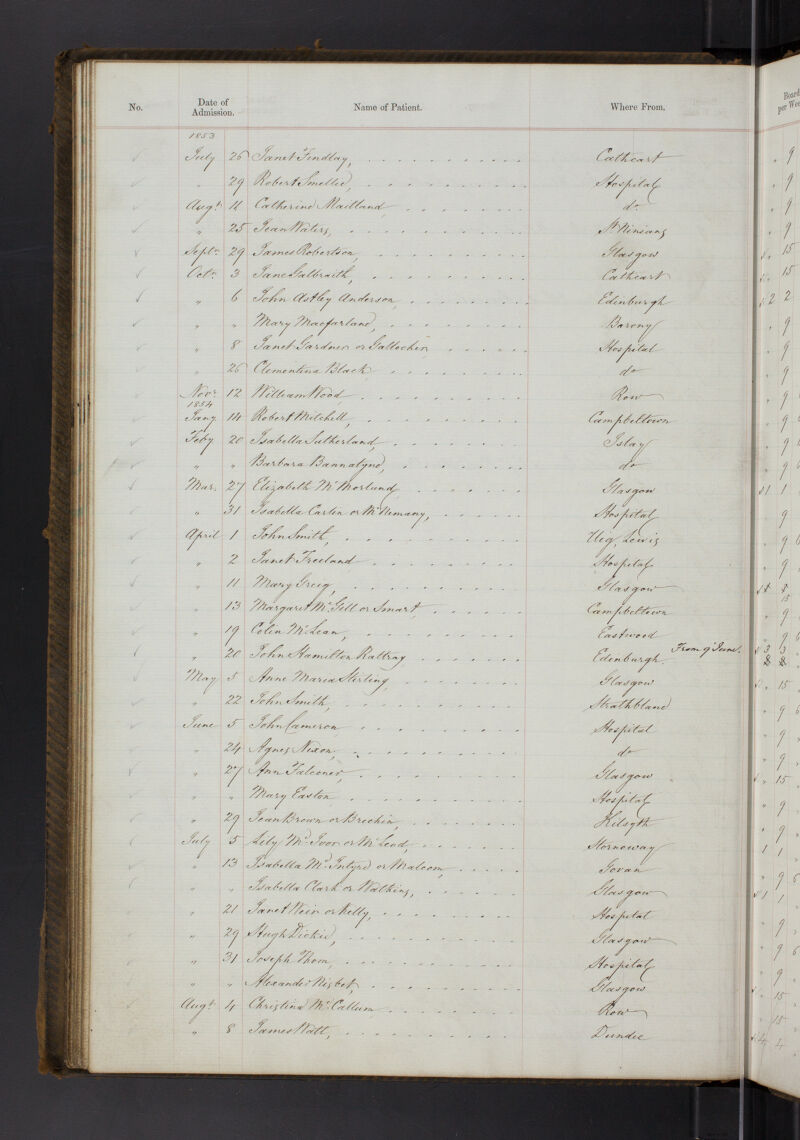 No. Date of Admission. Name of Patient. Where From. Board per Wee
1853
July 26 Janet Findlay, Cathcart " 9
" 29 Robert Smellie, Hospital " 9
Augt 11 Catherine Maitland do " 9
" 25 Jean Waters, St Ninians " 9
Septr 29 James Robertson, Glasgow " 15
Octr 3 Jane Galbraith, Cathcart " 15
" 6 John Astley Anderson, Edinburgh 2 2
" " Mary Macfarlane, Barony " 9
" 8 Janet Gardner or Gallochen Hospital " 9
" 26 Clementina Black do " 9
Novr 12 William Wood Row " 9
1854
Jany 14 Robert Mitchell, Campbeltown " 9
Feby 20 Isabella Sutherland, Islay " 9
" " Barbara Bannatyne, do " 9 6
Mar. 27 Elizabeth Glasgow 1 1
" 31 Isabella Carlin or Hospital 9
April 1 John Smith, Uig, Lewis " 9 6
" 2 Janet Freeland Hospital " 9
" 11 Mary Greig, Glasgow 15
" 13 Margaret McGill or Smart, Campbeltown " 9
" 19 Colin McLean, Eastwood " 9 6
" 20 John Hamilton Rattray Edinburgh From 9 June. 3 3
May 5 Anne Maria Stirling Glasgow " 15
" 22 John Smith, Strathblane " 9 6
June 5 John Cameron Hospital " 9
" 24 Agnes Nixon, do " 9
" 27 Ann Falconer, Glasgow " 15
" " Mary Easton Hospital " 9
" 29 Jean Brown or Brechin, Kilsyth " 9
July 5 Lily McIvor or McLeod, Stornoway 1 1
" 13 Isabella McIntyre or Malcom, Govan " 9 6
" " Isabella Clark or Watkins, Glasgow 1 1
" 21 Janet Weir or Kelly, Hospital " 9
" 29 Hugh Dickie, Glasgow " 9 6
" 31 Joseph Thom, Hospital " 9
" " Alexander Nisbet, Glasgow " 15
Augt 4 Christina McCallum Row " 15
" 8 James Watt, Dundee 4 4